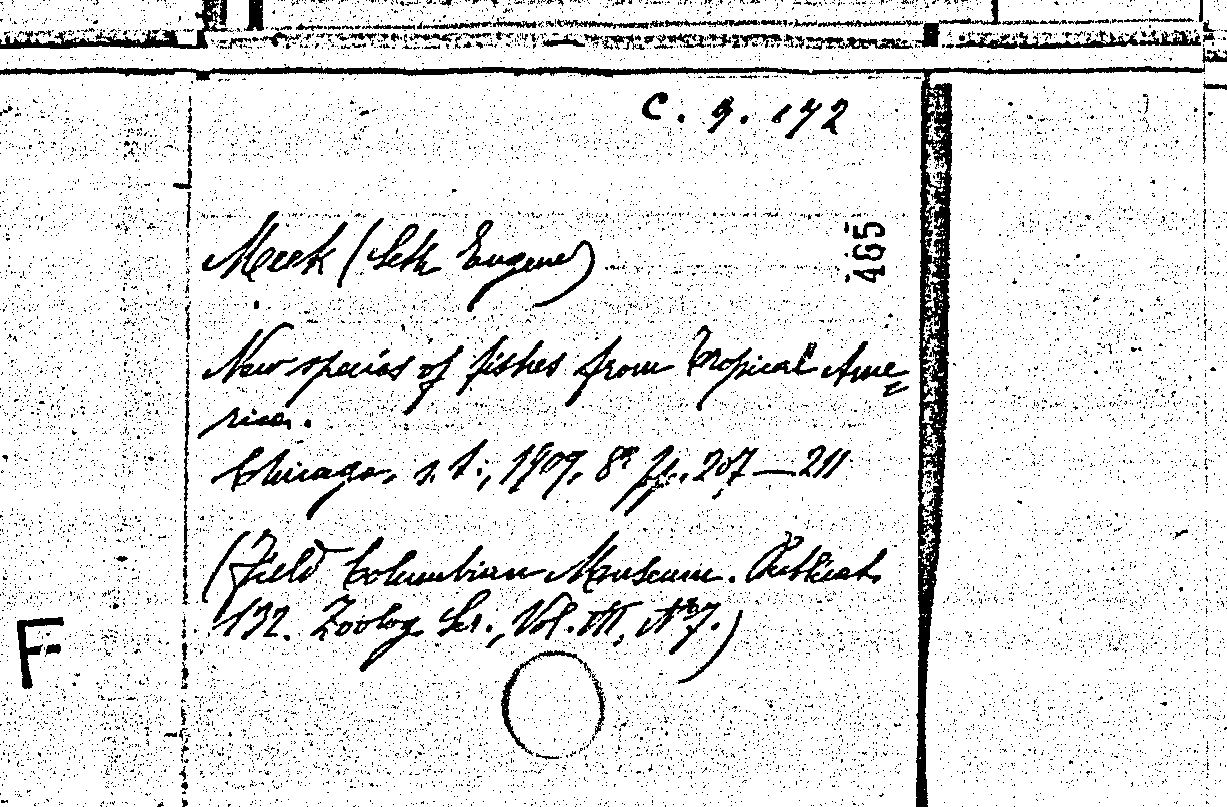 C. 9. 172
465
Meek (Seth Eugene)
New species of fishes from Tropical Ame=
rica.
Chicago, s. t., 1909, 8º pp. 207 — 211
(Field Columbian Museum. Publicat.
132. Zoolog. Ser., Vol. VII, Nº 7.)
F